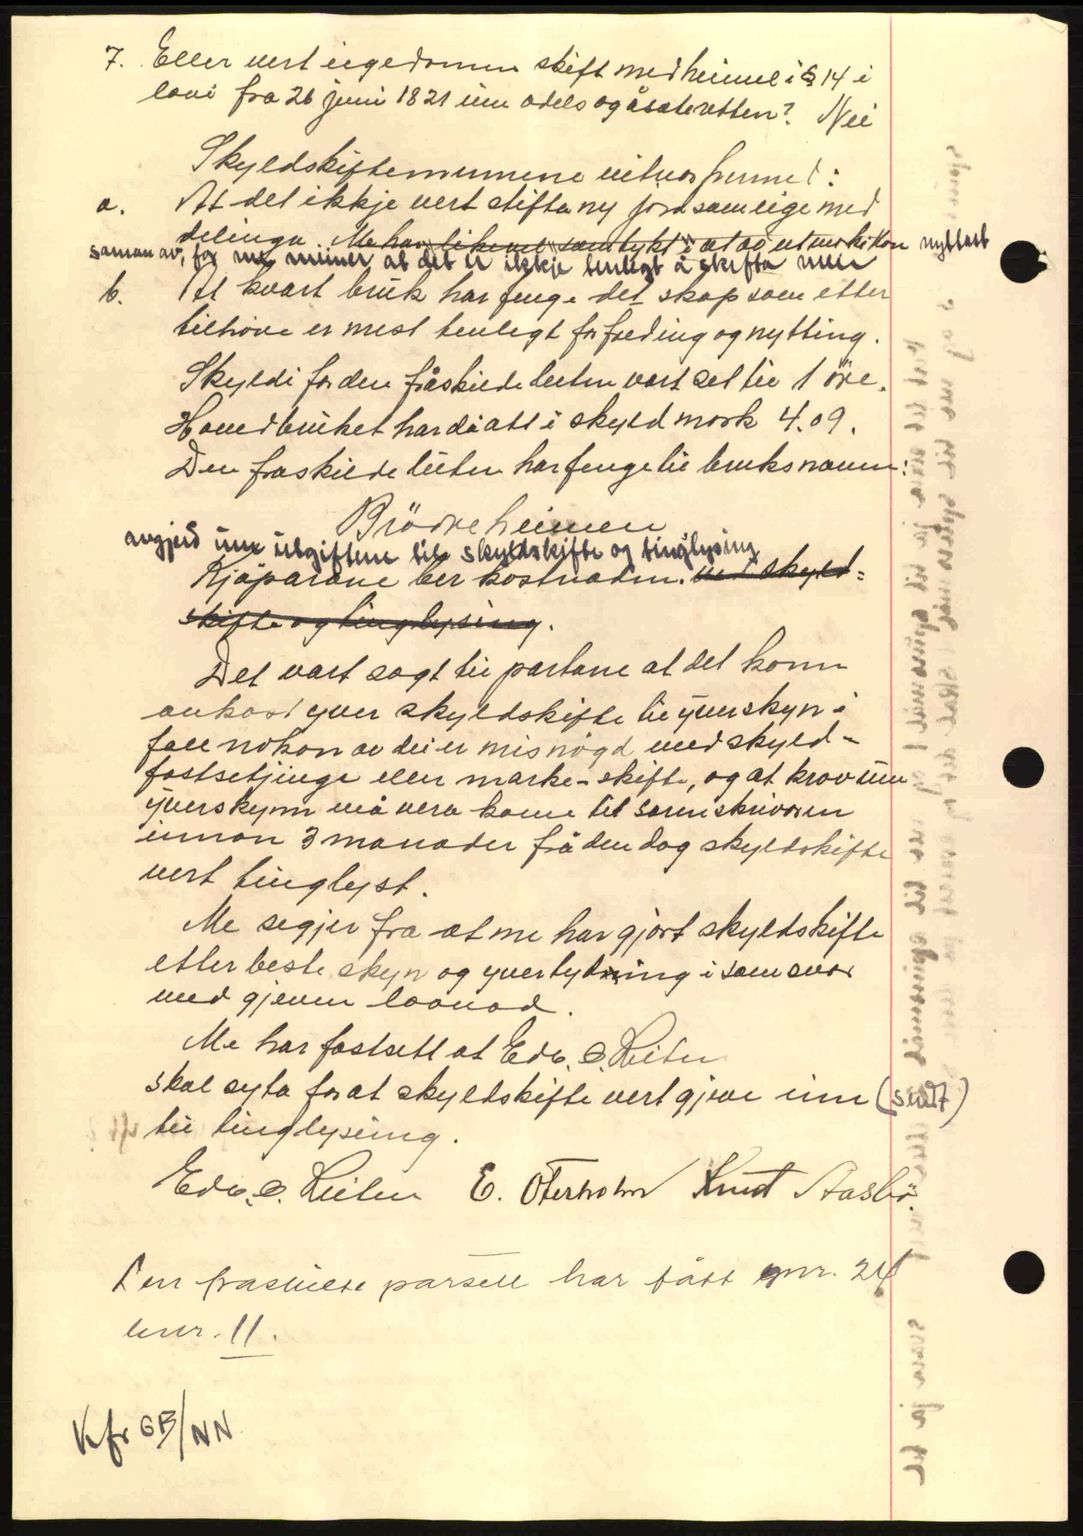 7. Eller vert eigedomen skift med heimel i § 14 i
lovi fra 26 juni 1821 um odels og åsætesretten? Nei
Skyldskiftemennene vitnar hermed:
a. At det ikkje vert skifta ny jordsameige med
delinga. Me har likevel samtykt i at av utmarki kan nyttast
saman av, for me meiner at det er ikkje tenlegt å skifta meir
b. At kvart bruk har fenge det skap som etter
tilhøve er mest tenlegt for freding og nytting.
Skyldi for den fråskilde luten vart set til 1 öre.
Hovedbruket har då att i skyld mork 4.09.
Den fraskilde luten har fenge til bruksnamn:
Brödreheimen
avgjerd um utgiftene til skyldskifte og tinglysing
Kjöparane ber kostnaden. ved skyld=
skifte og tinglysing.
Det vart sagt til partane at det kann
ankast yver skyldskifte til yverskyn i
fall nokon av dei er misnögd med skyld-
fastsetjinga eller marke-skifte, og at krav um
yverskynn må vera kome til sorinskrivaren
innan 3 manader frå den dag skyldskifte
vert tinglyst.
Me segjer fra at me har gjort skyldskifte
etter beste skyn og yvertydning i samsvar
med gjeven lovnad.
Me har fastsett at Edv. O. Leiten
skal syta for at skyldskifte vert gjeve inn (sendt)
til tinglysing.
Edv. O. Leiten E. Oterholm Knut Aasbö.
Den fraskilte parsell har fått gnr. 24
bnr. 11.
Kfr GB/NN